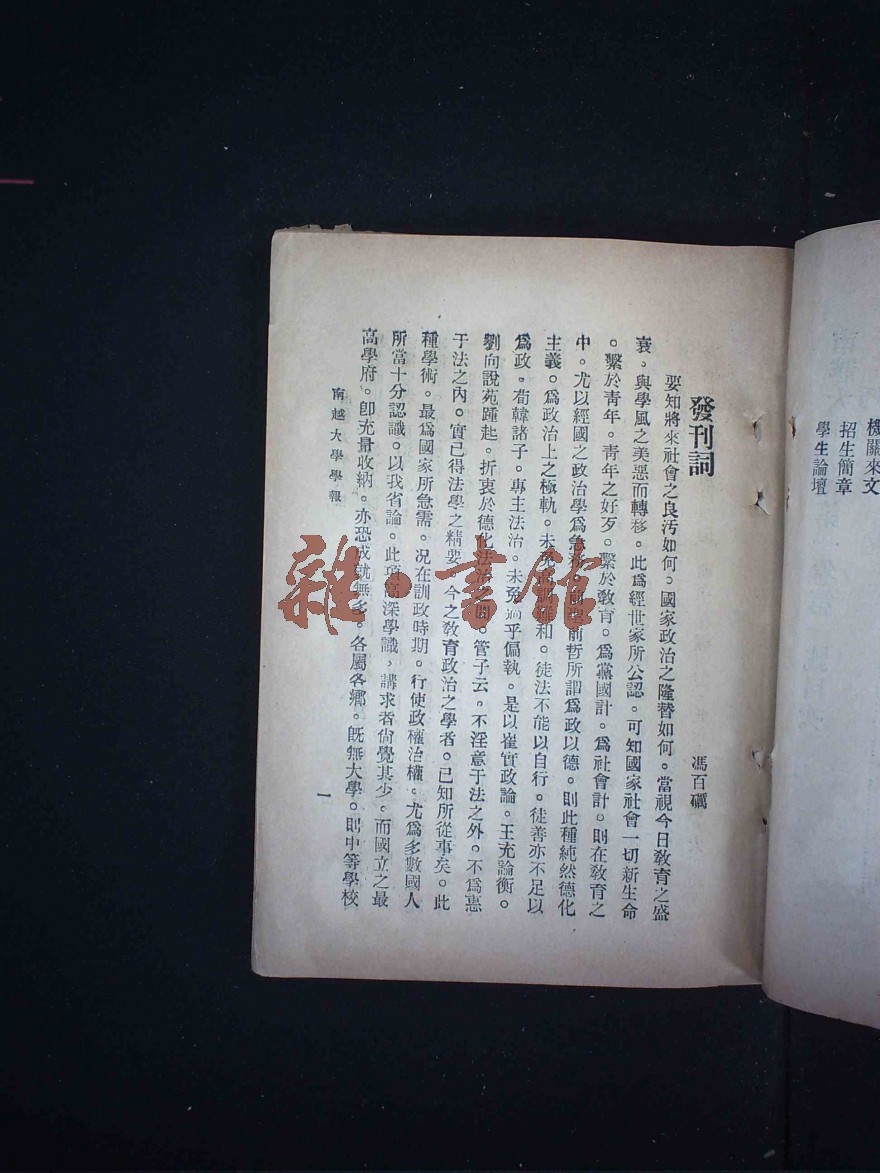 機關來文
招生簡章
學生論壇
發刊詞
馮百礪
要知將來社會之良汚如何。國家政治之隆替如何。當視今日敎育之盛
衰。與學風之美惡而轉移。此爲經世家所公認。可知國家社會一切新生命
。繫於靑年。靑年之好歹。繫於敎育。爲黨國計。爲社會計。則在敎育之
中。尤以經國之政治學爲急務。前聖前哲所謂爲政以德。則此種純然德化
主義。爲政治上之極軌。未免和。徒法不能以自行。徒善亦不足以
爲政。荀韓諸子。專主法治。未免過乎偏執。是以崔實政論。王充論衡。
劉向說苑踵起。折衷於德化法治之間。管子云。不淫意于法之外。不爲惠
于法之內。實已得法學之精要。今之敎育政治之學者。已知所從事矣。此
種學術。最爲國家所急需。况在訓政時期。行使政權治權。尤爲多數國人
所當十分認識。以我省論。此項高深學識，講求者尙覺其少。而國立之最
高學府。卽充量收納。亦恐成就無多。各屬各鄉。旣無大學。則中等學校
南越大學學報
一
雜·書館